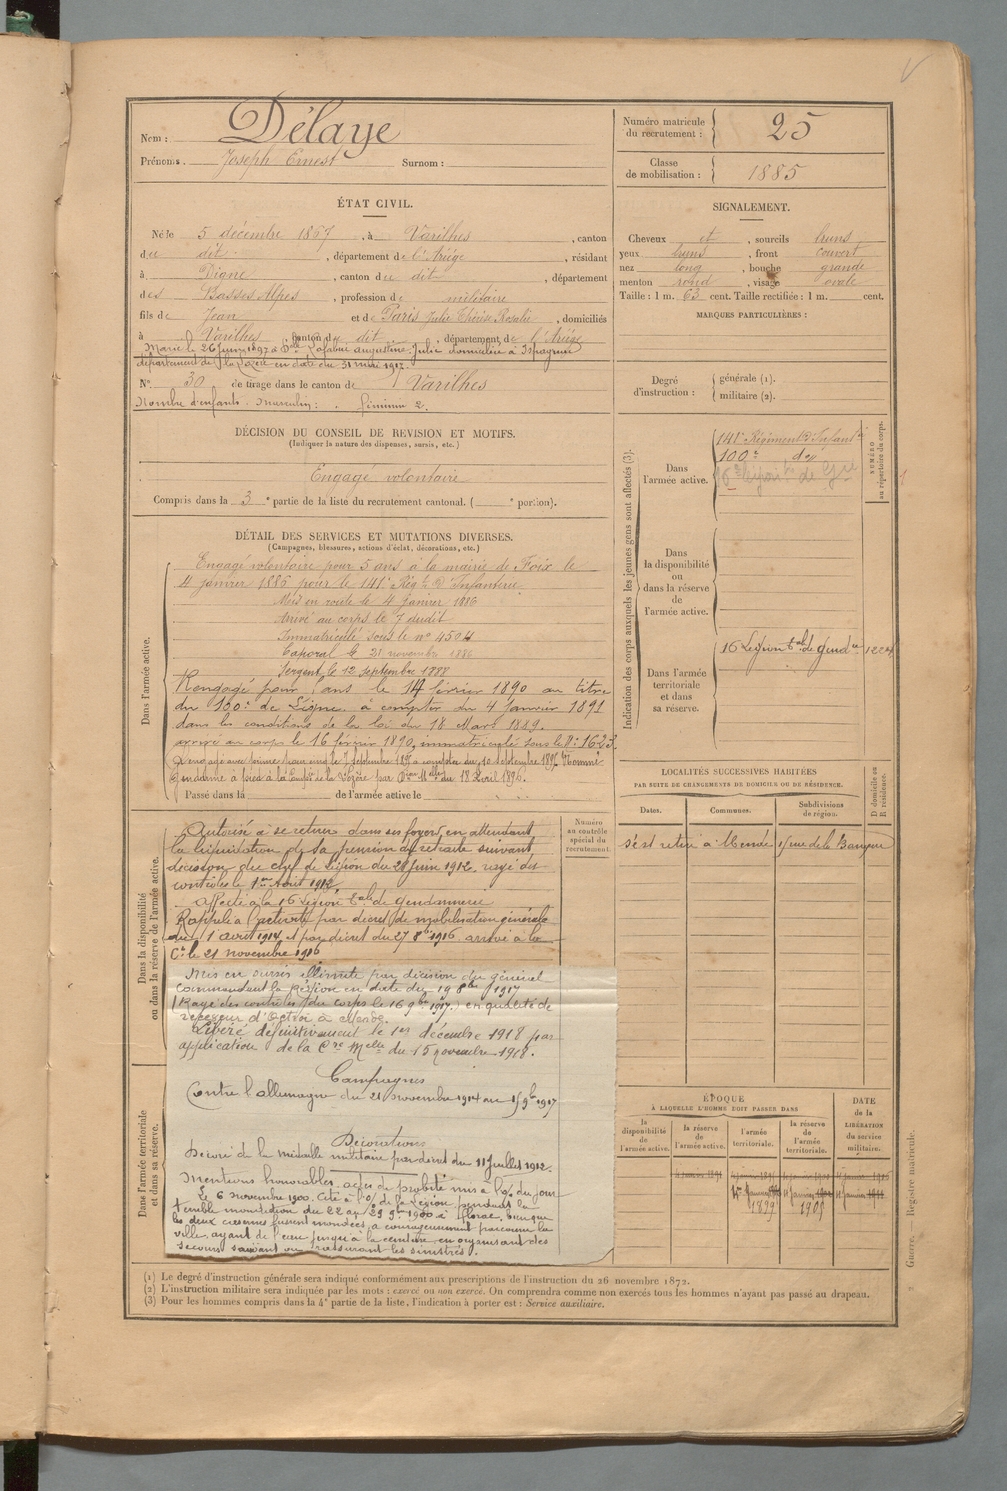 Nom : Délaye
Prénoms. Joseph Ernest Surnom :
Numéro matricule du recrutement : 25
Classe de mobilisation : 1885
ÉTAT CIVIL.
Né le 5 décembre 1867, à Varilhes, canton
du dit, département de l'Ariége, résidant
à Digne, canton du dit, département
des Basses Alpes, profession de militaire
fils de Jean et de Paris Julie Thérèse Rosalie, domiciliés
à Varilhes, canton du dit, département de l'Ariége
Marié le 26 Juin 1897 à Dlle Lafabrie Augustine Julie domiciliée à Ispagnac
département de la Lozère en date du 31 mai 1917.
N° 30 de tirage dans le canton de Varilhes
Nombre d'enfants : Masculin : . féminin 2.
SIGNALEMENT.
Cheveux et, sourcils bruns
yeux bruns, front couvert
nez long, bouche grande
menton rond, visage ovale
Taille : 1 m. 63 cent. Taille rectifiée : 1 m. cent.
MARQUES PARTICULIÈRES :
Degré d'instruction : générale (1).
militaire (2).
DÉCISION DU CONSEIL DE REVISION ET MOTIFS.
(Indiquer la nature des dispenses, sursis, etc.)
Engagé volontaire
Compris dans la 3e partie de la liste du recrutement cantonal. ( e portion).
DÉTAIL DES SERVICES ET MUTATIONS DIVERSES.
(Campagnes, blessures, actions d'éclat, décorations, etc.)
Dans l'armée active.
Engagé volontaire pour 5 ans à la mairie de Foix le
4 janvier 1886 pour le 141e Régt d'Infanterie
Mis en route le 4 janvier 1886
Arrivé au corps le 7 dudit
Immatriculé sous le n° 4504
Caporal le 21 novembre 1886
Sergent le 12 septembre 1888
Rengagé pour ans le 14 février 1890 au titre
du 100e de Ligne à compter du 4 Janvier 1891
dans les conditions de la loi du 18 Mars 1889.
arrivé au corps le 16 février 1890, immatriculé sous le N° 1623.
Gendarme à pied à la Compie de la Lozère par Don Mlle du 18 Avril 1896.
Passé dans la de l'armée active le
Indication des corps auxquels les jeunes gens sont affectés (3).
NUMÉRO au répertoire du corps.
Dans l'armée active.
141e Régiment d'Infanterie
100e do
16e Légion de Gie
Dans la disponibilité ou dans la réserve de l'armée active.
Dans l'armée territoriale et dans sa réserve.
16 Légion bale de Gendie
LOCALITÉS SUCCESSIVES HABITÉES
PAR SUITE DE CHANGEMENTS DE DOMICILE OU DE RÉSIDENCE.
Dates. Communes. Subdivisions de région. D domicile ou R résidence.
s'est retiré à Mende
Numéro au contrôle spécial du recrutement.
Dans la disponibilité ou dans la réserve de l'armée active.
Autorisé à se retirer dans ses foyers en attendant
la liquidation de sa pension de retraite suivant
décision du chef de Légion du 28 juin 1912. rayé des
contrôles le 1er Août 1912
affecté à la 16 Légion bale de gendarmerie
Rappelé à l'activité par décret de mobilisation générale
du 1 août 1914 et par décret du 27 8bre 1916 arrivé à la
Cie le 21 novembre 1916
Mis en sursis illimité par décision du général
Commandant la Région en date du 19 8bre 1917
(Rayé des contrôles du corps le 16 9bre 1917.) en qualité de
receveur d'octroi à Mende.
Libéré définitivement le 1er décembre 1918 par
application de la Cre Mlle du 15 novembre 1918.
Campagnes
Contre l'allemagne du 21 novembre 1914 au 15 9bre 1917
Dans l'armée territoriale et dans sa réserve.
Décorations
Décoré de la médaille militaire par décret du 11 Juillet 1912.
Mentions honorables. actes de probité mis à l'o/ du jour
Le 6 novembre 1900. Cité à l'o/ de la Légion pendant la
terrible inondation du 22 au 29 9bre 1900 à Florac, bien que
les deux casernes fussent inondées, a courageusement parcouru la
ville, ayant de l'eau jusqu'à la ceinture en organisant des
secours sauvant ou rassurant les sinistrés.
ÉPOQUE
À LAQUELLE L'HOMME DOIT PASSER DANS
la disponibilité de l'armée active. la réserve de l'armée active. l'armée territoriale. la réserve de l'armée territoriale.
DATE de la LIBÉRATION du service militaire.
1899 1905
(1) Le degré d'instruction générale sera indiqué conformément aux prescriptions de l'instruction du 26 novembre 1872.
(2) L'instruction militaire sera indiquée par les mots : exercé ou non exercé. On comprendra comme non exercés tous les hommes n'ayant pas passé au drapeau.
(3) Pour les hommes compris dans la 4e partie de la liste, l'indication à porter est : Service auxiliaire.
Guerre. — Registre matricule.